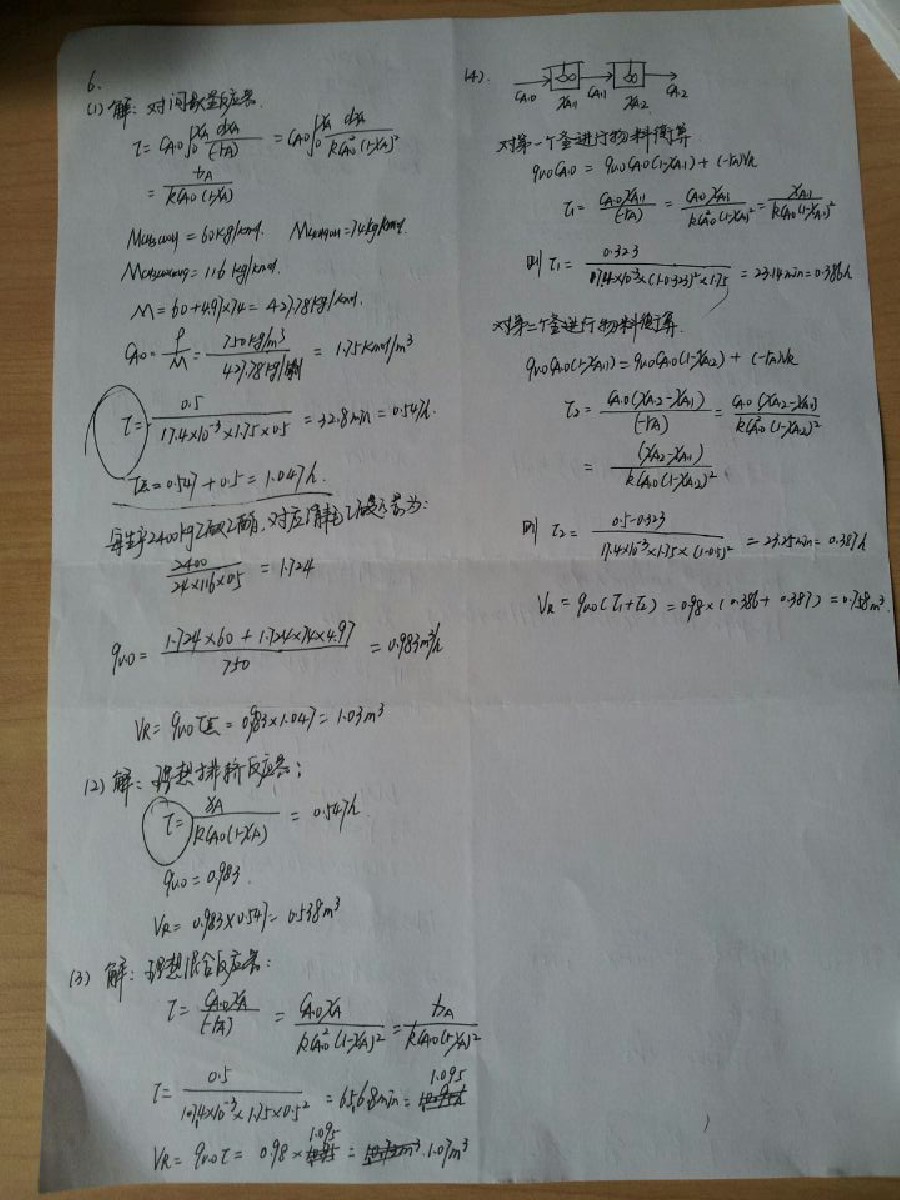 6.
(1) 解: 对间歇釜反应器.
τ = C_A0 ∫₀^xA dxA/(-rA) = C_A0 ∫₀^xA dxA/(kC²A0(1-xA)²)
= xA/(kC_A0(1-xA))
M_CH3COOH = 60kg/kmol. M_C4H9OH = 74kg/kmol.
M_CH3COOC4H9 = 116 kg/kmol.
M = 60+4.97×74 = 427.78kg/kmol.
C_A0 = ρ/M = 750kg/m³/427.78kg/kmol = 1.75kmol/m³
τ = 0.5/(17.4×10⁻³×1.75×0.5) = 32.8min = 0.547h.
= 0.547 + 0.5 = 1.047h.
每生产2400kg乙酸乙酯,对应消耗乙酸之量为:
2400/(24×116×0.5) = 1.724
qv0 = (1.724×60 + 1.724×74×4.97)/750 = 0.983m³/h
VR = qv0τ = 0.983×1.047 = 1.03m³
(2) 解: 理想排挤反应器:
τ = xA/(kC_A0(1-xA)) = 0.547h
qv0 = 0.983.
VR = 0.983×0.547 = 0.538m³
(3) 解: 理想混合反应器:
τ = C_A0xA/(-rA) = C_A0xA/(kC²A0(1-xA)²) = xA/(kC_A0(1-xA)²)
τ = 0.5/(17.4×10⁻³×1.75×0.5²) = 65.68min = 1.095
VR = qv0τ = 0.98×1.095 = 1.07m³
(4).
C_A0 x_A1 C_A1 x_A2 C_A2
对第一个釜进行物料衡算
qv0C_A0 = qv0C_A0(1-x_A1) + (-rA)VR
τ1 = C_A0x_A1/(-rA) = C_A0x_A1/(kC²A0(1-x_A1)²) = x_A1/(kC_A0(1-x_A1)²)
则 τ1 = 0.323/(17.4×10⁻³×(1-0.323)²×1.75) = 23.14min = 0.386h
对第二个釜进行物料衡算
qv0C_A0(1-x_A1) = qv0C_A0(1-x_A2) + (-rA)VR
τ2 = C_A0(x_A2-x_A1)/(-rA) = C_A0(x_A2-x_A1)/(kC²A0(1-x_A2)²)
= (x_A2-x_A1)/(kC_A0(1-x_A2)²)
则 τ2 = (0.5-0.323)/(17.4×10⁻³×1.75×(1-0.5)²) = 23.25min = 0.387h
VR = qv0(τ1+τ2) = 0.98×(0.386+0.387) = 0.758m³.